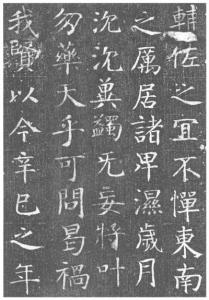 輔佐之宜不憚東南
之厲居諸卑濕歲月
沈沈冀蠲无妄將叶
勿藥大乎可問曷禍
我賢以今辛巳之年